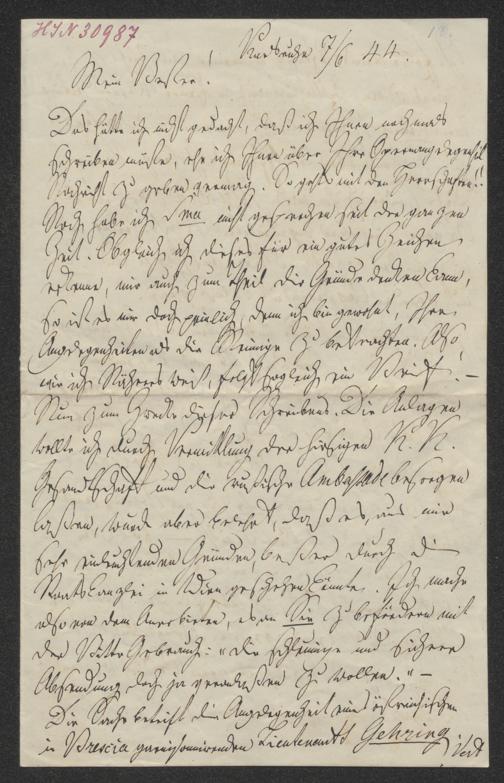 HIN 30987
Karlsruhe 7/6 44.
Mein Bester!
Das hätte ich nicht gedacht, daß ich Ihnen nochmals
schreiben müßte, ehe ich Ihnen über Ihre Opernangelegenheit
Nachricht zu geben vermag. So geht's mit den Herrschaften!!
Noch habe ich nicht gesprochen seit der ganzen
Zeit. Obgleich ich dieses für ein gutes Zeichen
erkenne, mir auch zum Theil die Gründe denken kann,
so ist es mir doch peinlich, denn ich bin gewohnt, Ihre
Angelegenheiten als die Meinige zu betrachten. Also
wie ich Näheres weiß, folgt sogleich ein Brief! —
Nun zum Zwecke dieses Schreibens. Die Anlagen
wollte ich durch Vermittlung der hiesigen K. K.
Gesandtschaft und die russische Ambassade besorgen
laßen, wurde aber belehrt, daß es, aus mir
sehr einleuchtenden Gründen, beßer durch die
Staatskanzlei in Wien geschehen könnte. Ich mache
also von dem Anerbieten, es an Sie zu befördern mit
der Bitte Gebrauch: "die schleunige und sichere
Absendung doch ja veranlaßen zu wollen." —
Die Sache betrifft die Angelegenheit eines östreichischen
in Brescia garnisonirenden Lieutenants Gehring